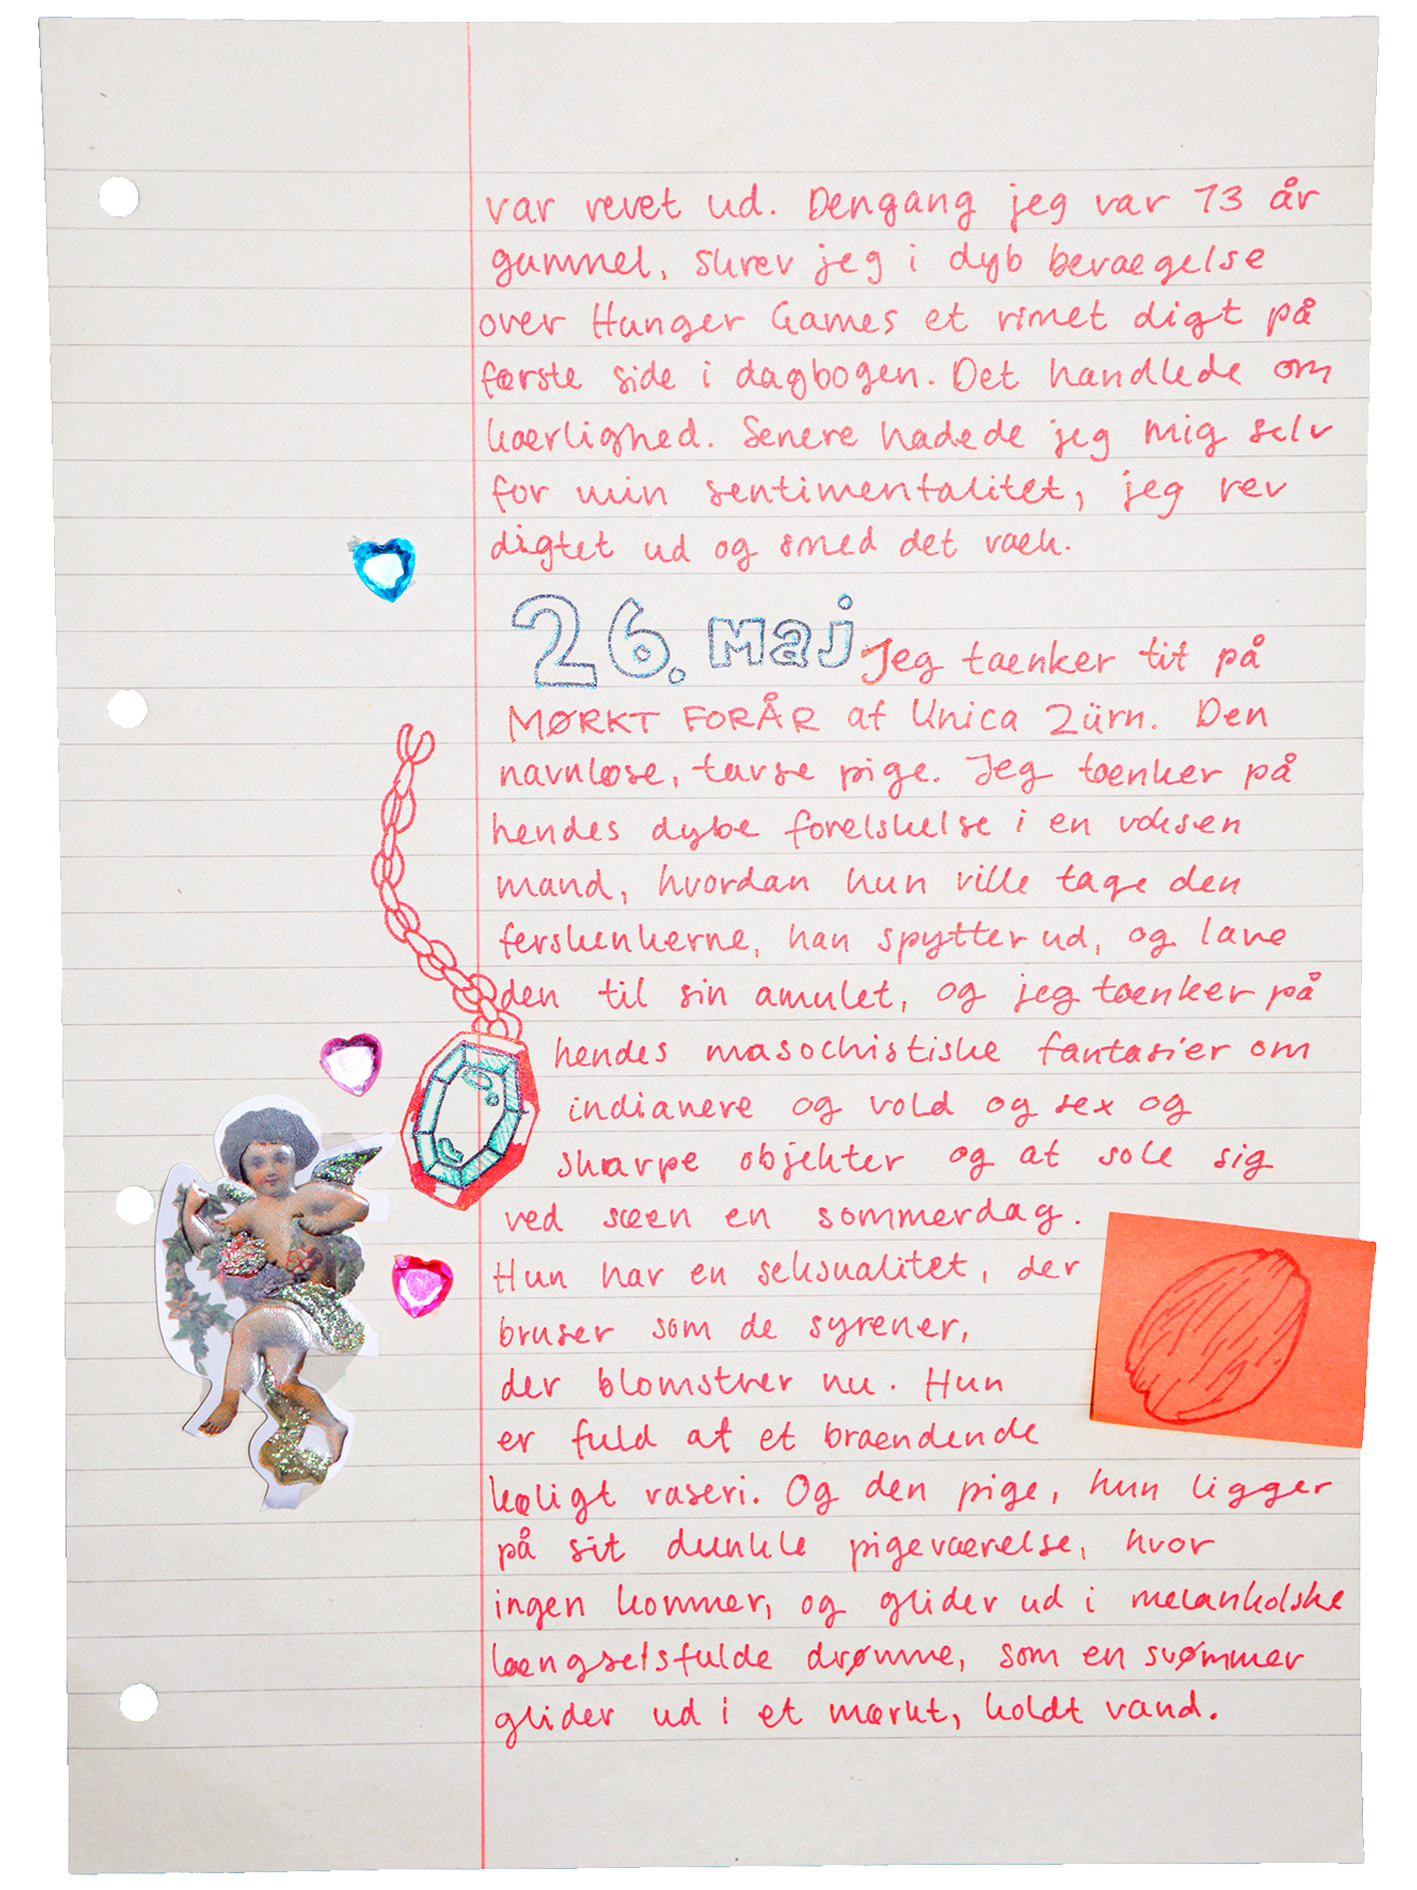 var revet ud. Dengang jeg var 13 år
gammel, skrev jeg i dyb bevægelse
over Hunger Games et rimet digt på
første side i dagbogen. Det handlede om
kærlighed. Senere hadede jeg mig selv
for min sentimentalitet, jeg rev
digtet ud og smed det væk.
26. maj Jeg tænker tit på
MØRKT FORÅR af Unica Zürn. Den
navnløse, tavse pige. Jeg tænker på
hendes dybe forelskelse i en voksen
mand, hvordan hun ville tage den
ferskenkerne, han spytter ud, og lave
den til sin amulet, og jeg tænker på
hendes masochistiske fantasier om
indianere og vold og sex og
skarpe objekter og at sole sig
ved søen en sommerdag.
Hun har en seksualitet, der
bruser som de syrener,
der blomstrer nu. Hun
er fuld af et brændende
køligt raseri. Og den pige, hun ligger
på sit dunkle pigeværelse, hvor
ingen kommer, og glider ud i melankolske
længselsfulde drømme, som en svømmer
glider ud i et mørkt, koldt vand.